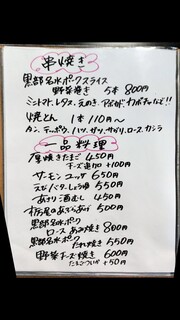 串焼き
黒部名水ポークスライス
野菜巻き 5本 800円
ミニトマト、レタス、えのき、アスパラ、かぼちゃなど!!
焼とん 1本 110円〜
タン、テッポウ、ハツ、サガリ、ロース、カシラ
一品料理
厚焼きたまご 450円
チーズ追加 +100円
サーモンユッケ 650円
えびバターしょうゆ 550円
あさり酒むし 450円
栃尾のあぶらあげ 500円
黒部名水ポーク
ロースあみ焼き 800円
黒部名水ポーク
たれ焼き 550円
野菜チーズ焼き 600円
+50円